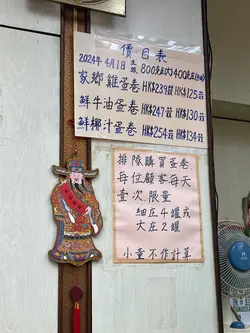 價目表
2024年4月1日生效 800克(大) 400克(細)
家鄉雞蛋卷 HK$239/罐 HK$125
鮮牛油蛋卷 HK$247/罐 HK$130
鮮椰汁蛋卷 HK$254/罐 HK$134
排隊購買蛋卷
每位顧客每天
壹次限量
細庄4罐或
大庄2罐
小童不作計算